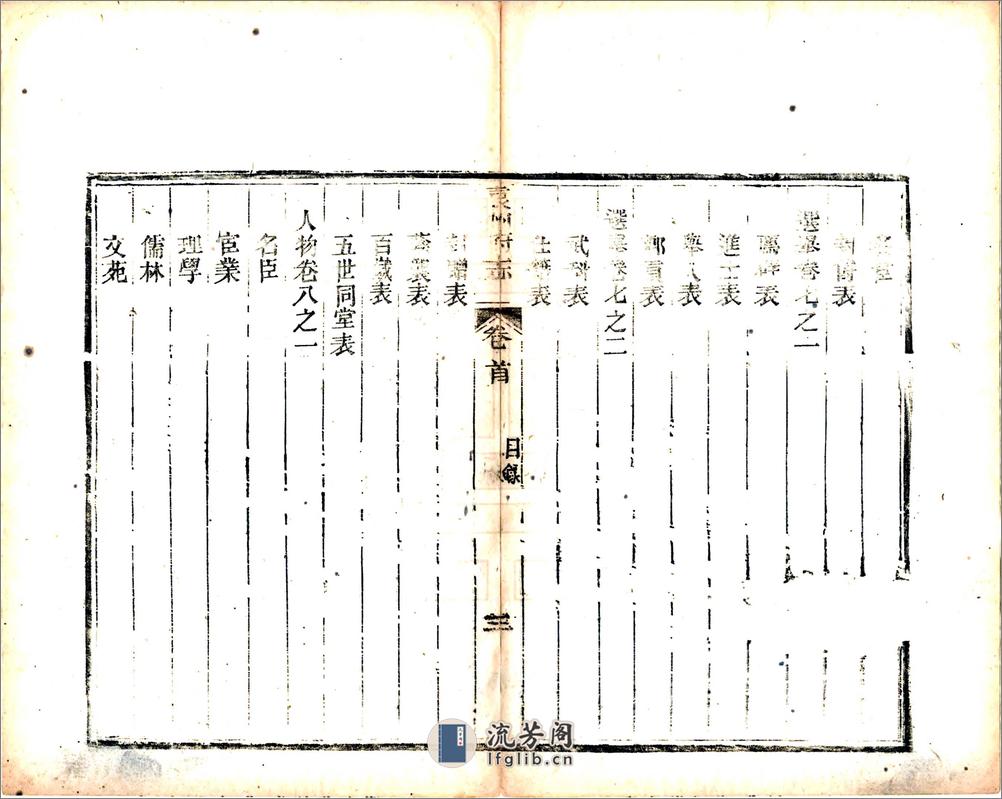 名宦
封爵表
選舉卷七之一
薦辟表
進士表
舉人表
鄉貢表
選舉卷七之二
武科表
仕籍表
袁州府志
卷首
目錄
三
封贈表
蔭襲表
百歲表
五世同堂表
人物卷八之一
名臣
宦業
理學
儒林
文苑
流芳阁
lfglib.cn